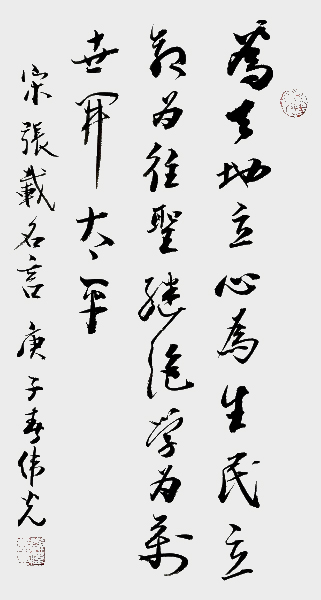 為天地立心為生民立
命为往聖継絶学为萬
世開太平
宋張載名言庚子春伟光